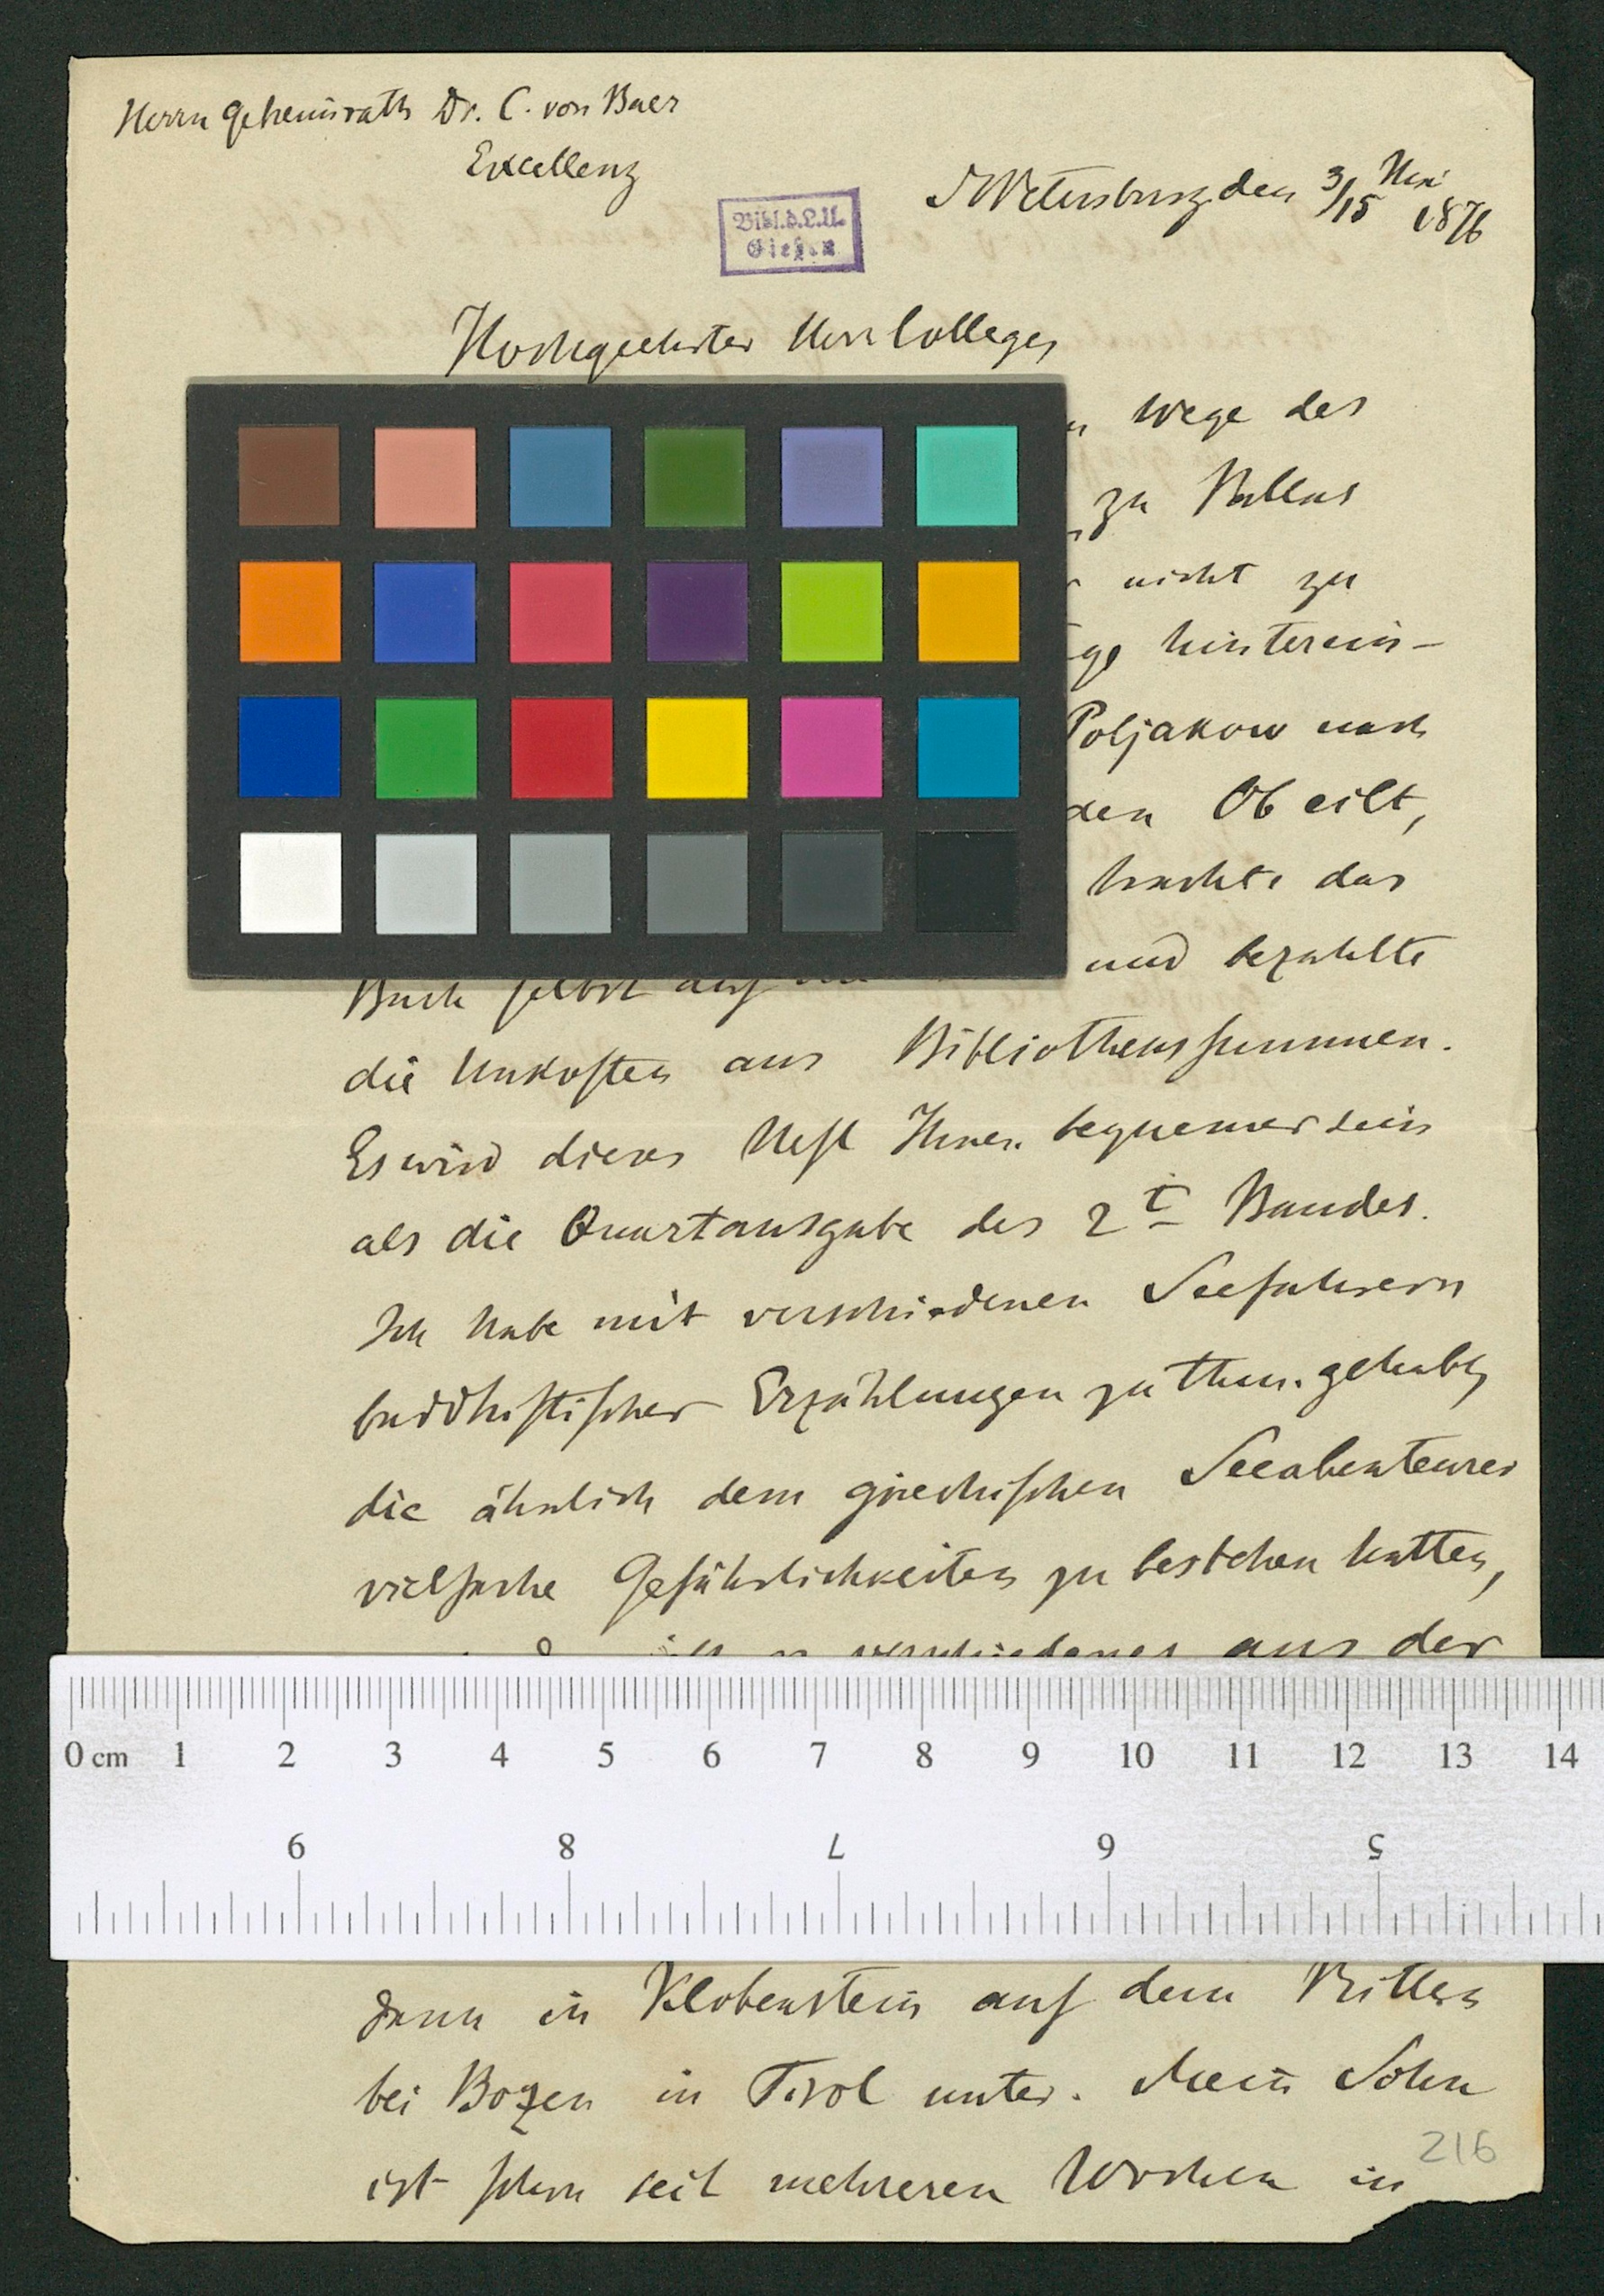 Herrn Geheimrath Dr. C. von Baer
Excellenz
St Petersburg, den 3/15 Mai 1876
Bibl.d.L.U.
Gießen
Hochgeehrter Herr College,
Wege des
zu Pallas
nicht zu
hinterein-
Poljakow nach
den Ob eilt,
brachte das
Buch selbst auf und bezahlte
die Unkosten aus Bibliothekssummen.
Es wird dieses Heft Ihnen bequemer sein
als die Quartausgabe des 2t Bandes.
Ich habe mit verschiedenen Seefahrern
buddhistischer Erzählungen zu thun gehabt,
die ähnlich dem griechischen Seeabenteurer
vielfache Gefährlichkeiten zu bestehen hatten,
verschiedenes aus der
0 cm 1 2 3 4 5 6 7 8 9 10 11 12 13 14
9 8 7 6 5
dann in Klobenstein auf dem Ritten
bei Bozen in Tirol unter. Mein Sohn
ist schon seit mehreren Wochen in
216